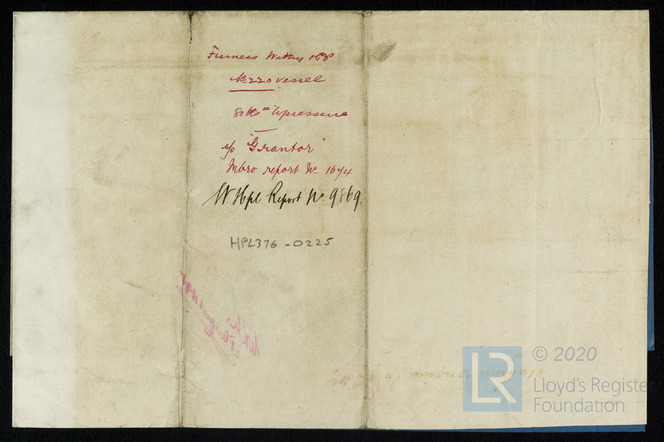 Furness Withy
No 220 vessel
80 lbs pressure
s/o "Grantor"
Mbro report No 1674
W. Hpl Report No. 9869.
HPL376-0225
LR
© 2020
Lloyd's Register
Foundation